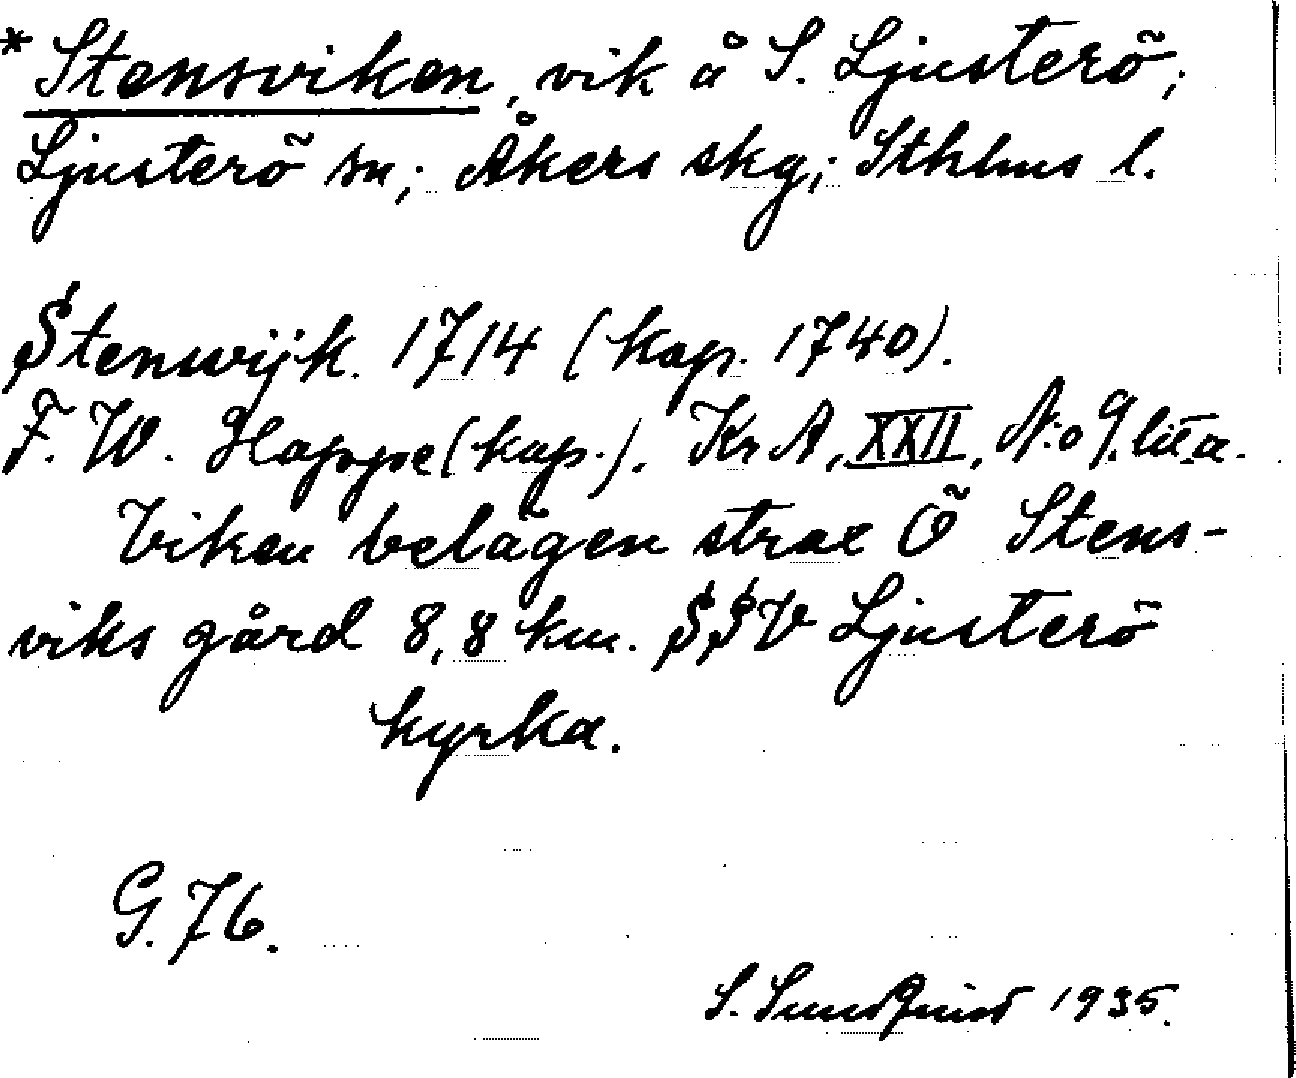 * Stensviken, vik å S. Ljusterö;
Ljusterö sn; Åkers skg; Sthlms l.
Stenswijk. 1714 (kap. 1740).
F. W. Happe (kap.). Kr A, XXII, N:o 9. lit. a.
Viken belägen strax Ö Stens-
viks gård 8,8 km. SSV Ljusterö
kyrka.
G. 76.
S. Sundquist 1935.